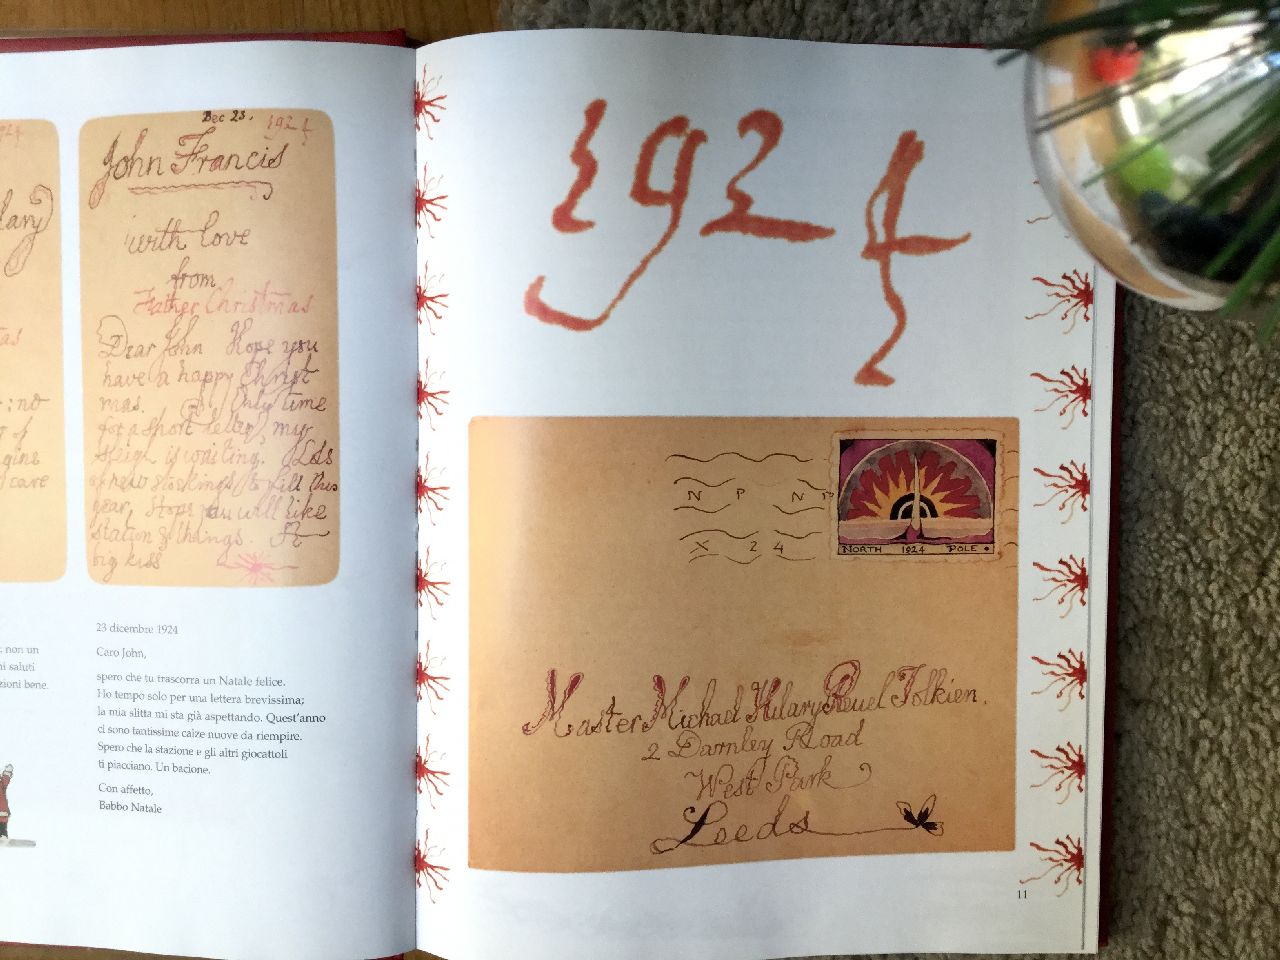 Dec 23. 1924
John Francis
with love
from
Father Christmas
Dear John Hope you
have a happy Christ
mas. Only time
for a short letter, my
sleigh is waiting. Lots
of new stockings to fill this
year. Hope you will like
station & things. A
big kiss
23 dicembre 1924
Caro John,
spero che tu trascorra un Natale felice.
Ho tempo solo per una lettera brevissima;
la mia slitta mi sta già aspettando. Quest'anno
ci sono tantissime calze nuove da riempire.
Spero che la stazione e gli altri giocattoli
ti piacciano. Un bacione.
Con affetto,
Babbo Natale
lary
as
; no
of
gine
care
; non un
ni saluti
zioni bene.
1924
N P N P
X 24
NORTH 1924 POLE
Master Michael Hilary Reuel Tolkien.
2 Darnley Road
West Park
Leeds
11